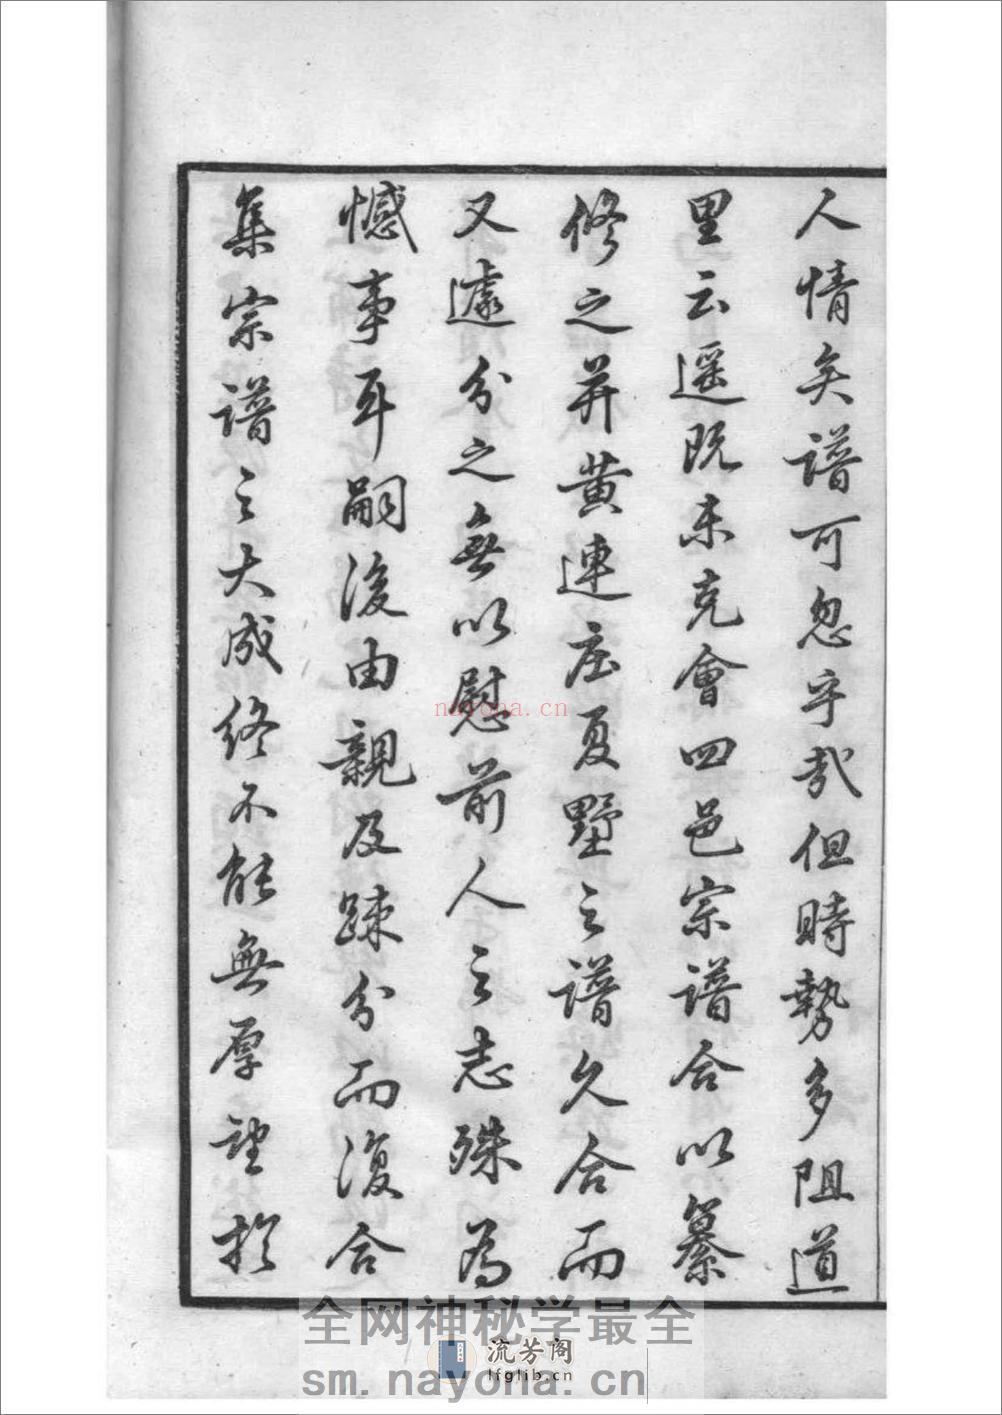 人情矣譜可忽乎哉但時勢多阻道
里云遥既未克會四邑宗譜合以纂
修之并黄連庄夏墅之譜久合而
又遽分之無以慰前人之志殊為
憾事耳嗣後由親及踈分而復合
集宗譜之大成終不能無厚望於
nayona.cn
全网神秘学最全
流芳阁
lfglib.cn
sm.nayona.cn